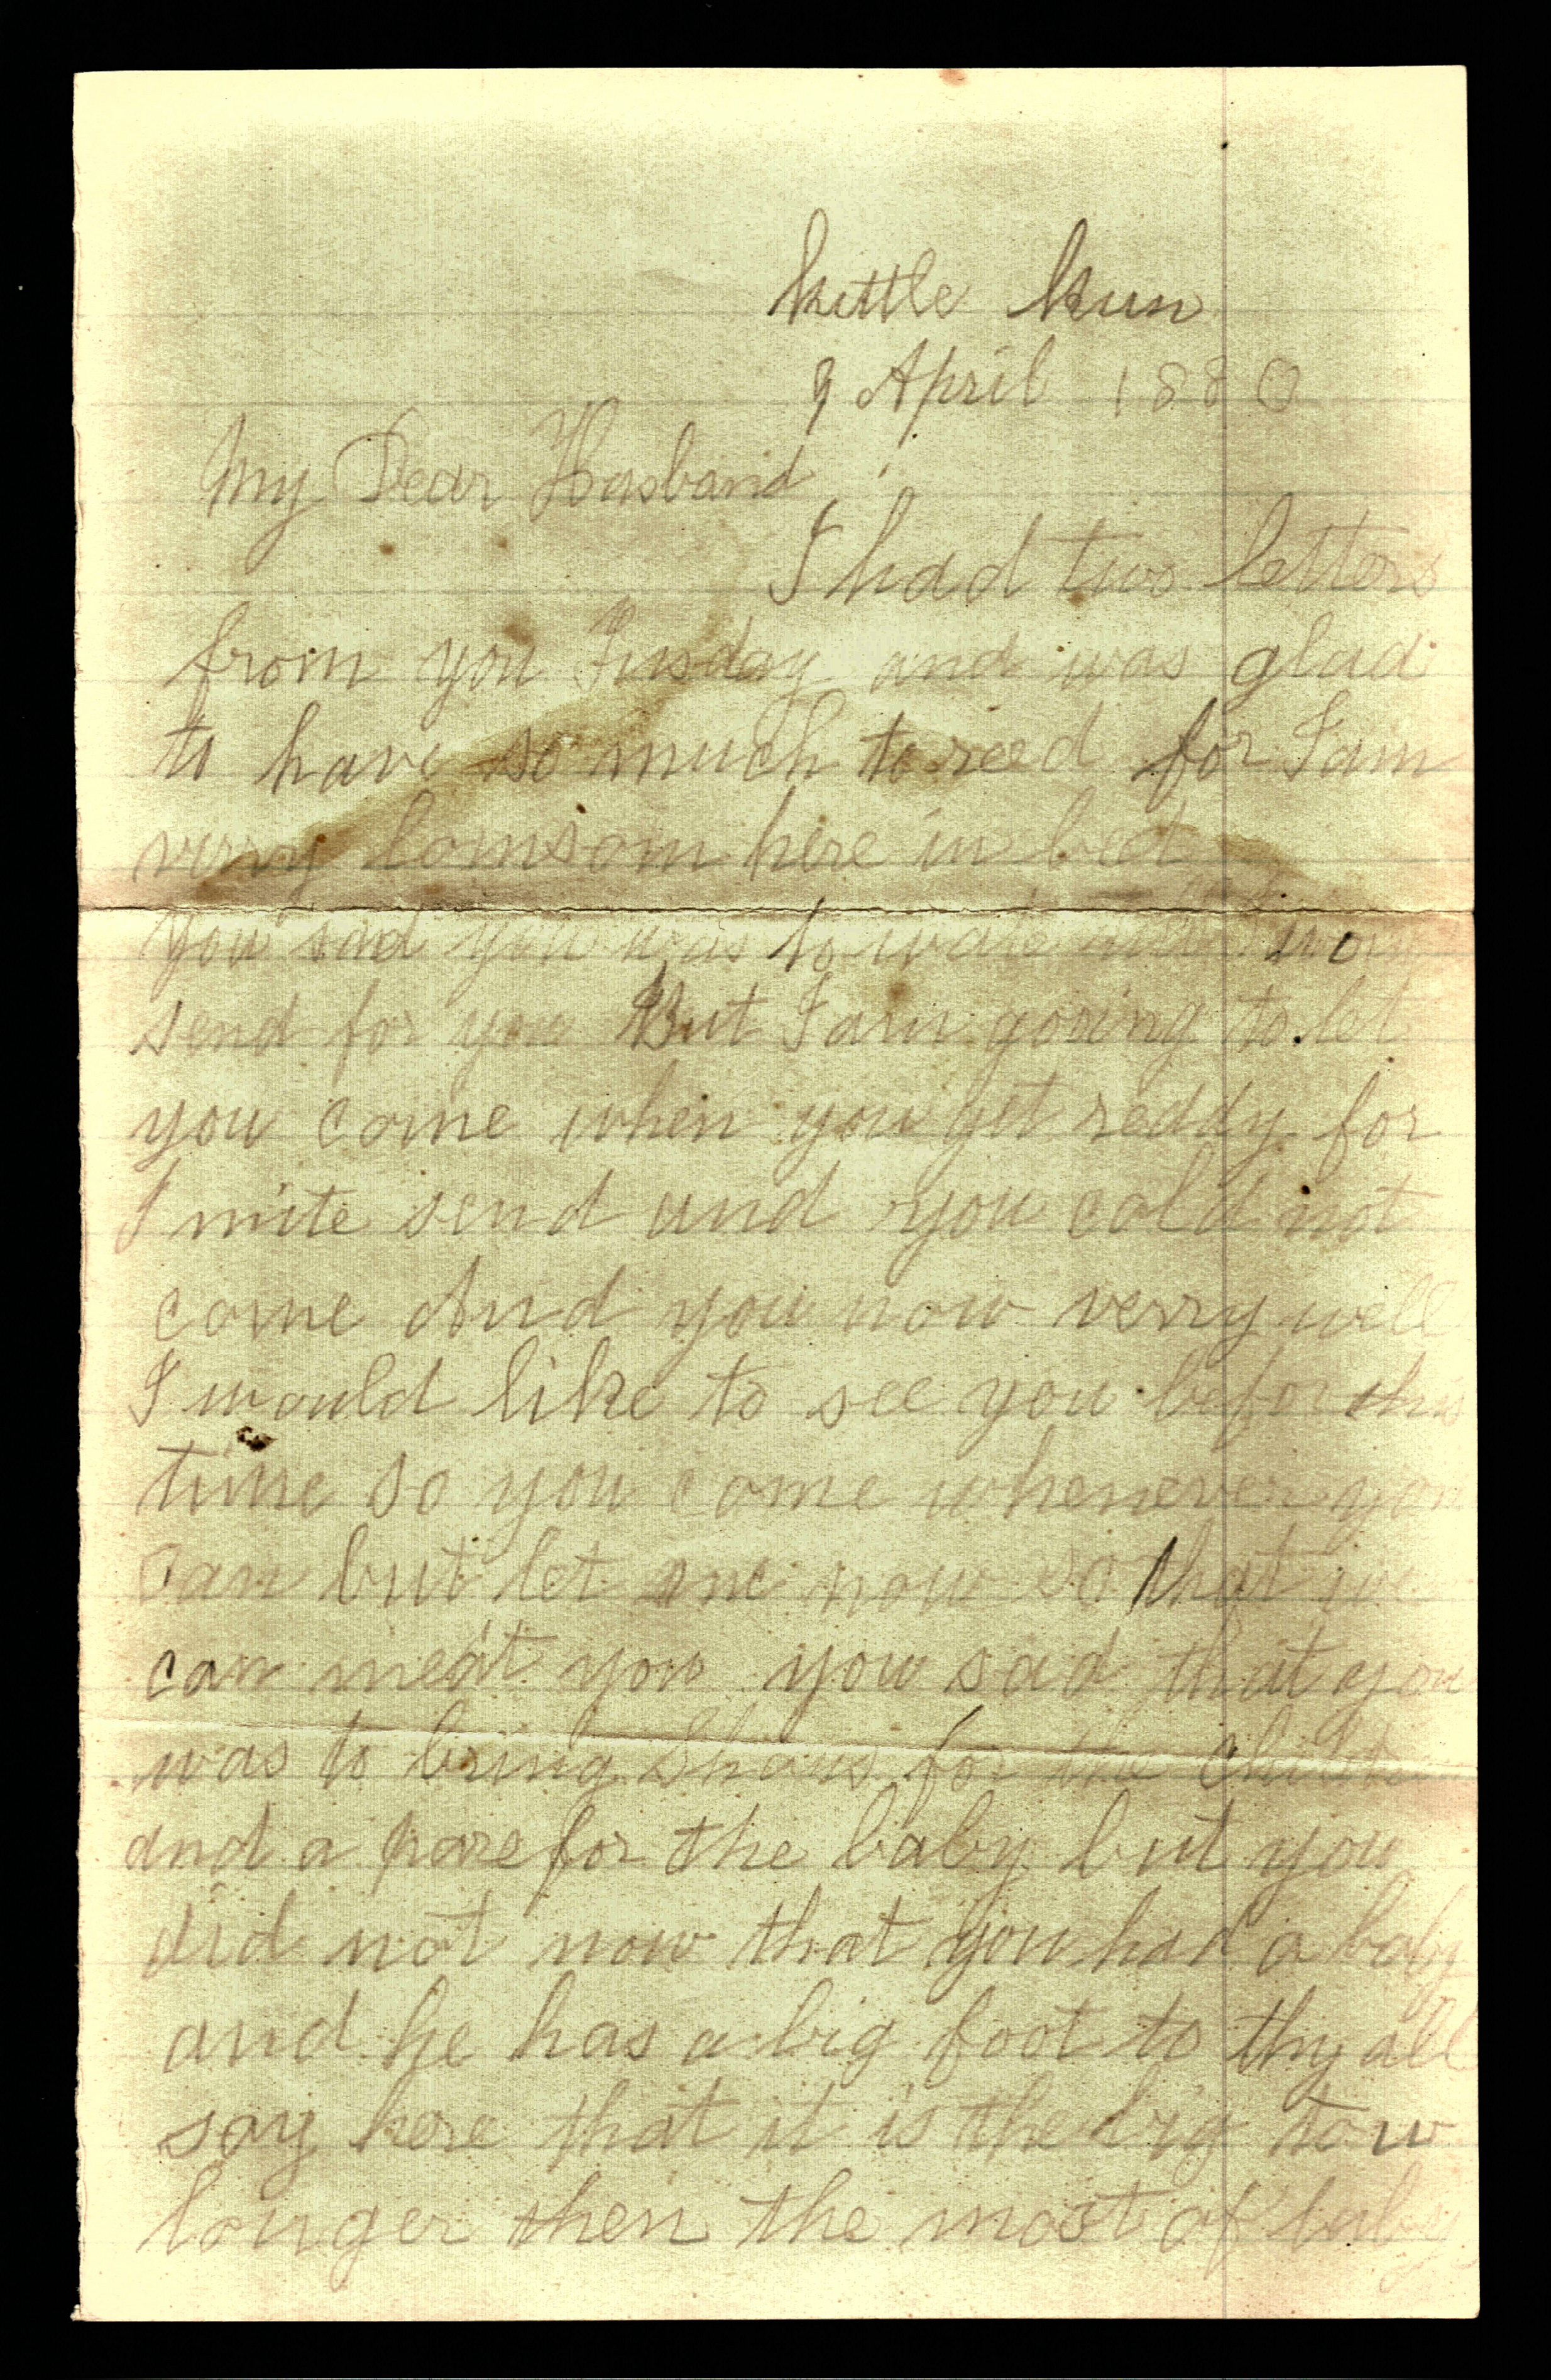 Kettle Run
9 April 1880
My Dear Husband
I had two letters
from you Tusday and was glad
to have so much to reed for I am
verry lomsom here in bed
you sad you was to wate
send for you But I am gooing to let
you come when you get reddy for
I mite send and you cold not
come And you now verry well
I would like to see you befor this
time so you come whenever you
can but let me now so that we
can meat you you sad that you
was to bring shous for the
and a pare for the baby but you
did not now that you had a baby
and he has a big foot to thy all
say here that it is the big tow
longer then the most of baby